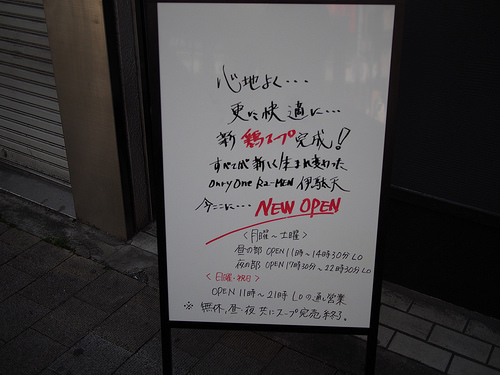 心地よく・・・
更に快適に・・・
新 鶏スープ完成！
すべてが新しく生まれ変わった
Only One Ra-MEN 伊駄天
今ここに・・・ NEW OPEN
〈月曜～土曜〉
昼の部 OPEN 11時～14時30分 LO
夜の部 OPEN 17時30分～22時30分 LO
〈日曜・祝日〉
OPEN 11時～21時 LOの通し営業
※ 無休、昼・夜 共にスープ完売終了。